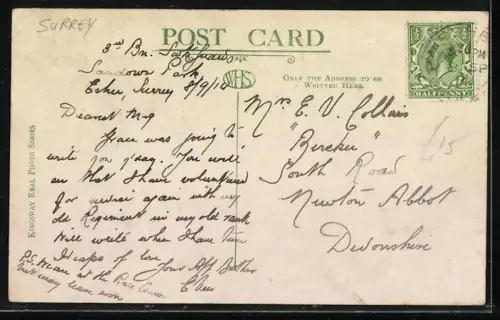 SURREY
POST CARD
3rd Bn.
Sandown Park
Esher, Surrey 8/9/14
WHS
ONLY THE ADDRESS TO BE
WRITTEN HERE.
HALFPENNY
KINGSWAY REAL PHOTO SERIES
Dearest Meg
Grace was going to
write you y'day. You will
see that I have volunteered
for service again with my
old Regiment in my old rank
Will write when I have time
Heaps of love
Your Aff Brother
P.S. We are at the Race Course
but may leave soon
Mrs E. V.
"
"
South Road
Newton Abbot
Devonshire
£15